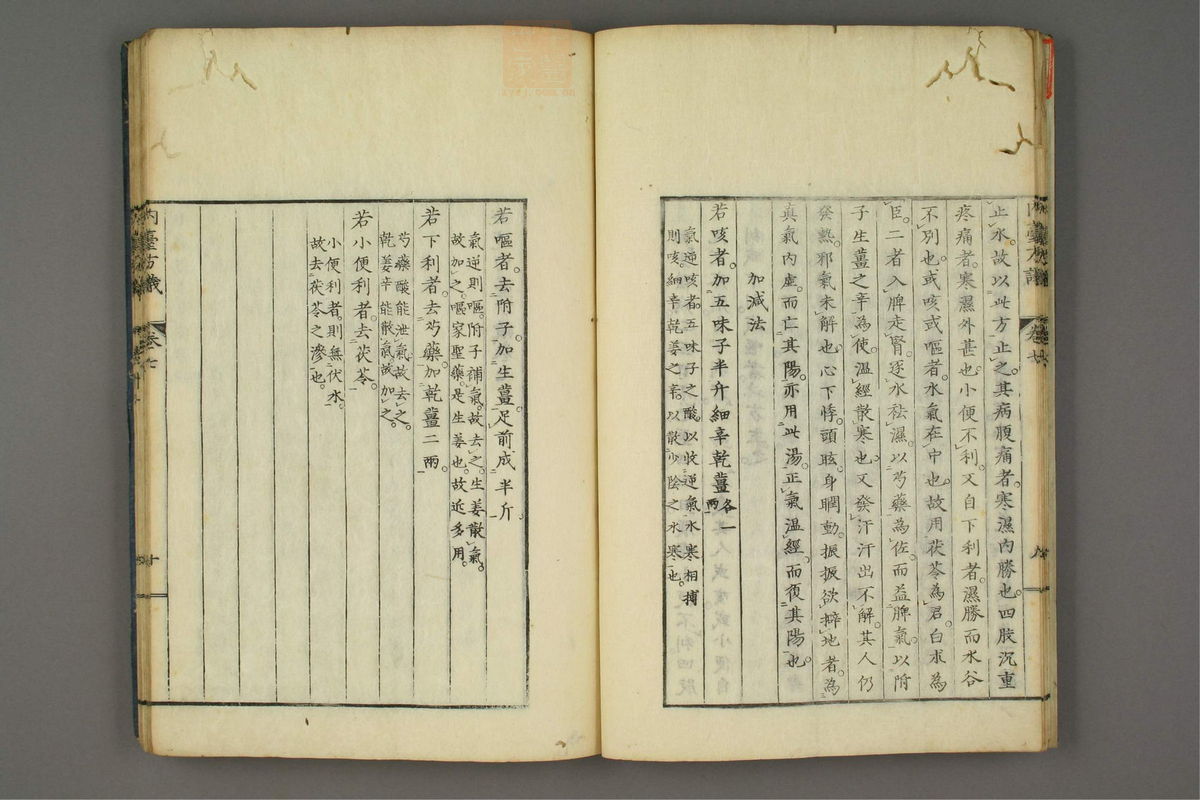 止水故以此方止之其病腹痛者寒濕內勝也四肢沉重
疼痛者寒濕外甚也小便不利又自下利者濕勝而水谷
不別也或咳或嘔者水氣在中也故用茯苓為君白朮為
臣二者入脾走腎逐水祛濕以芍藥為佐而益脾氣以附
子生薑之辛為使溫經散寒也又發汗汗出不解其人仍
發熱邪氣未解也心下悸頭眩身瞤動振振欲擗地者為
真氣內虛而亡其陽亦用此湯正氣溫經而復其陽也
加減法
若咳者加五味子半斤細辛乾薑各一兩
氣逆咳者五味子之酸以收逆氣水寒相摶
則咳細辛乾姜之辛以散少陰之水寒也
內臺方議 卷七 九
若嘔者去附子加生薑足前成半斤
氣逆則嘔附子補氣故去之生姜散氣
故加之嘔家聖藥是生姜也故近多用
若下利者去芍藥加乾薑二兩
芍藥酸能泄氣故去之
乾姜辛能散氣故加之
若小便利者去茯苓
小便利者則無伏水
故去茯苓之滲也
內臺方議 卷七 十